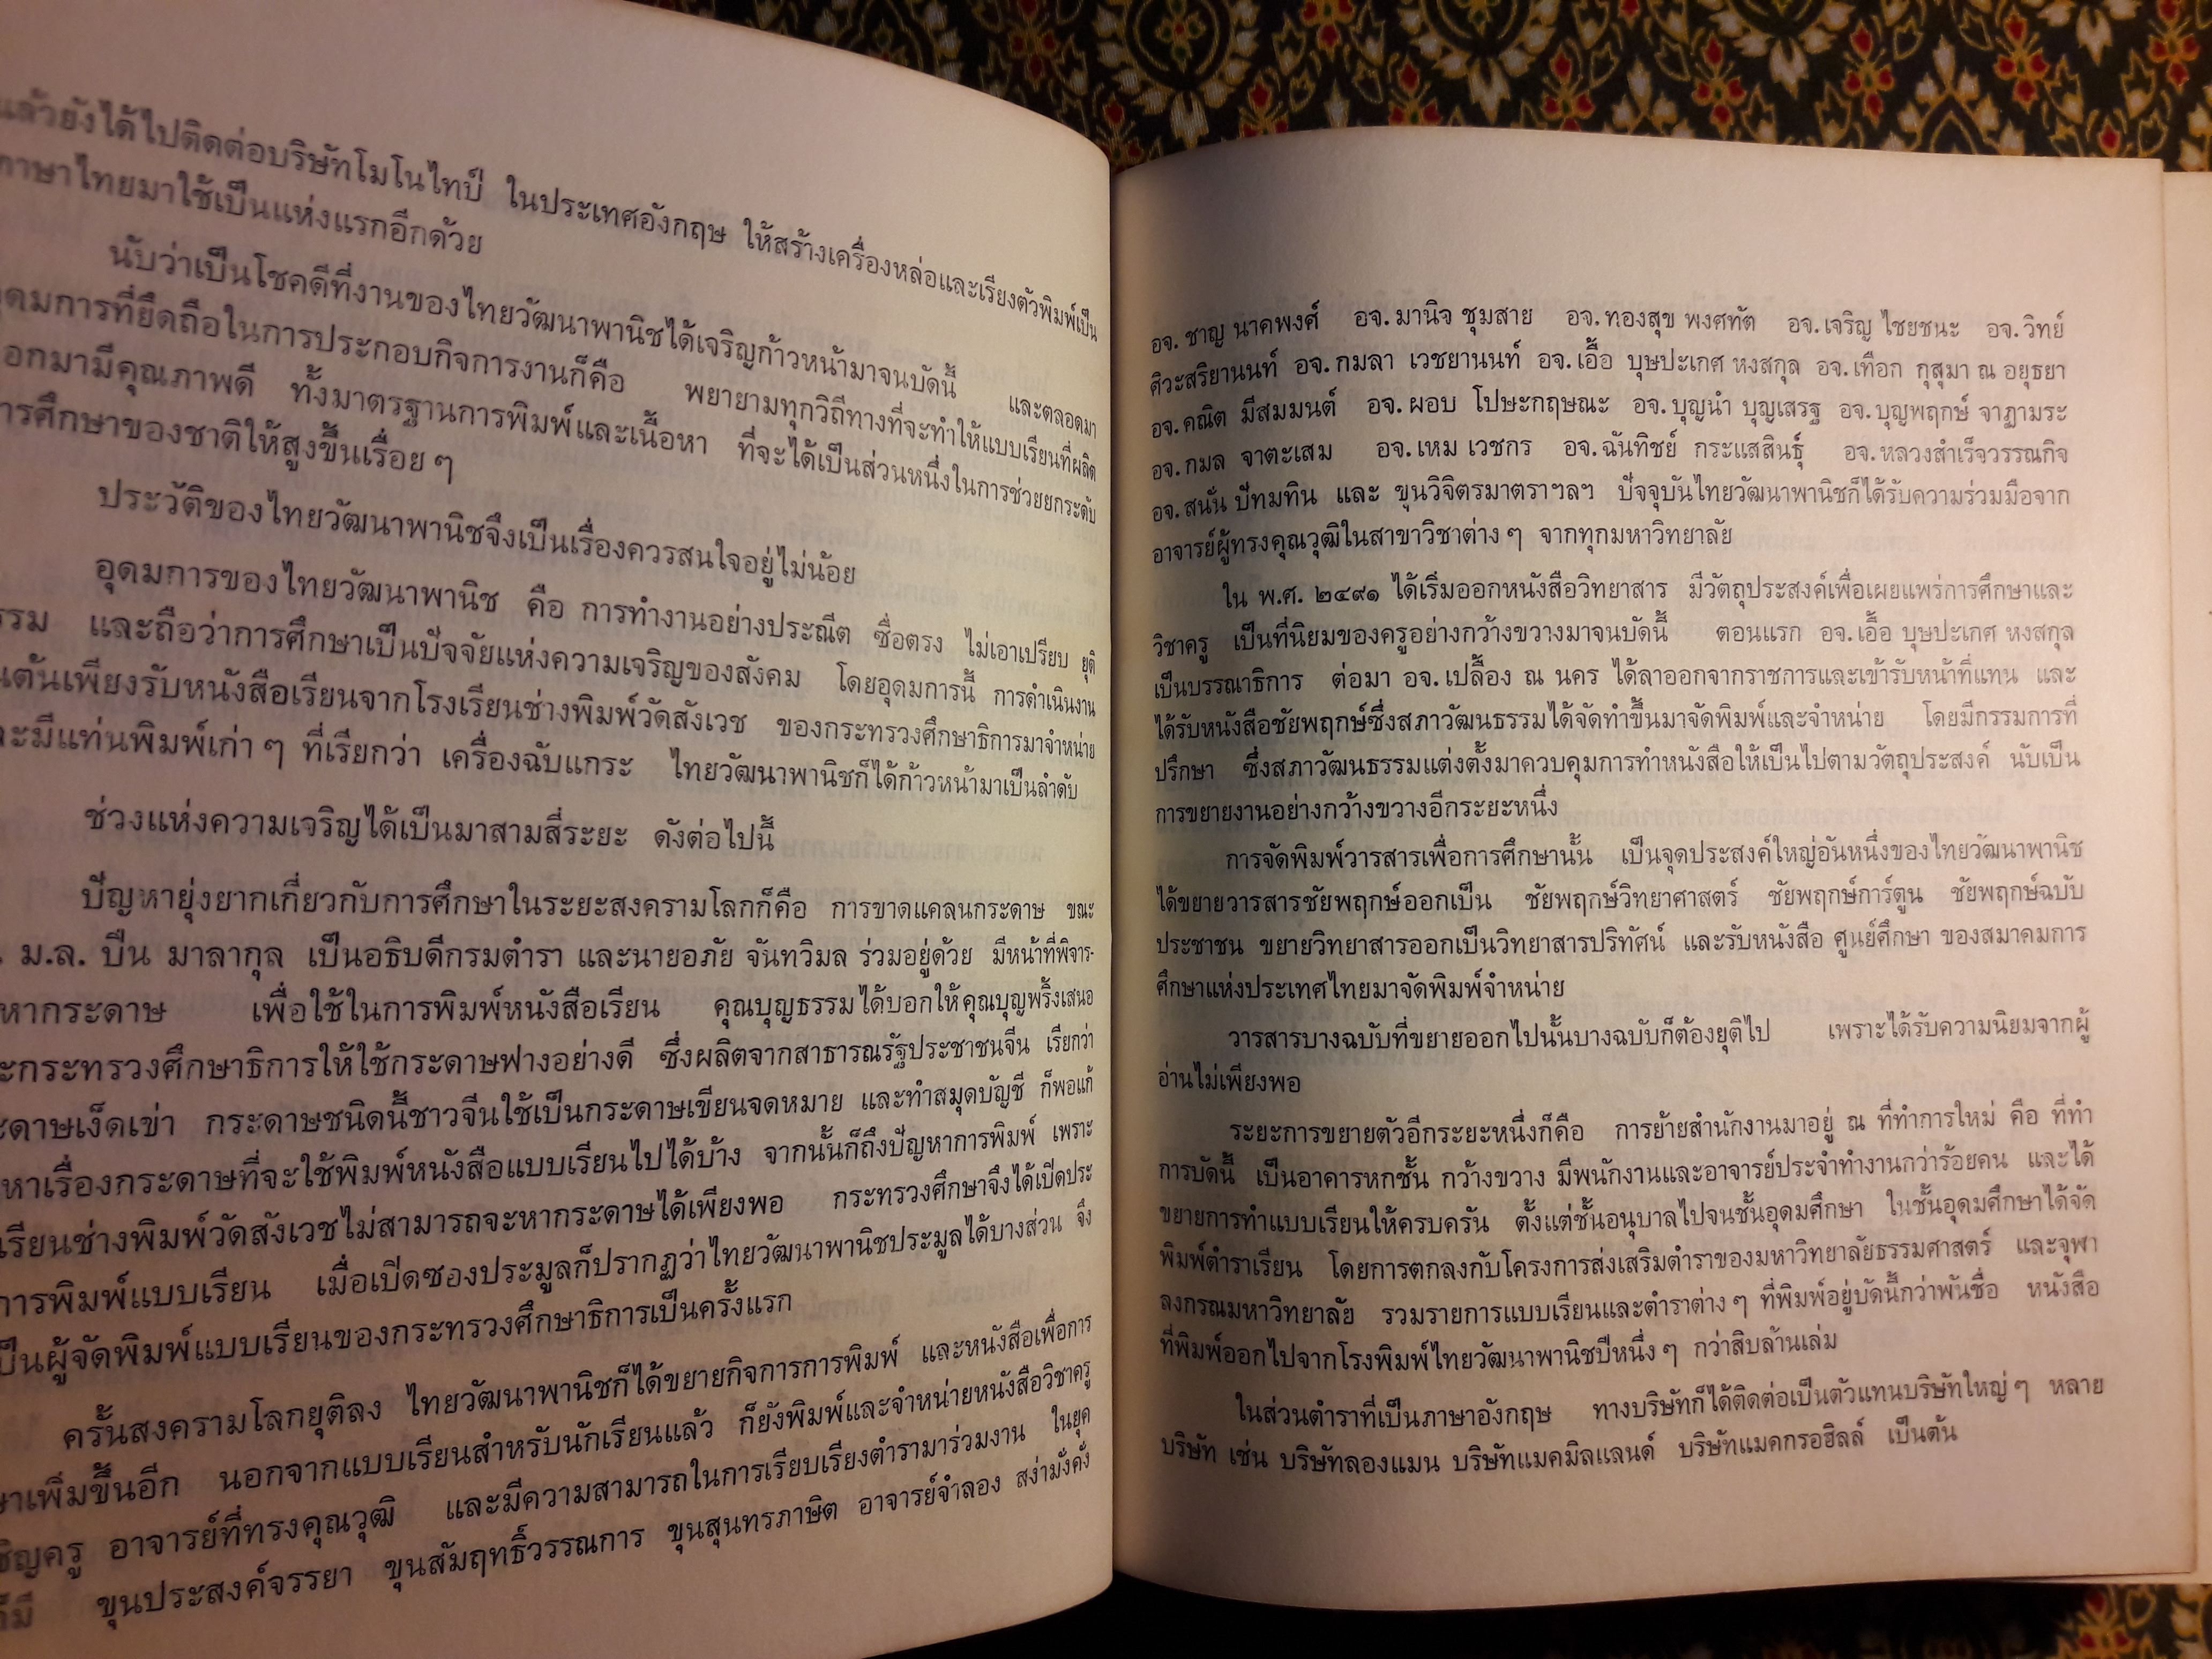 แล้วยังได้ไปติดต่อบริษัทโมโนไทป์ ในประเทศอังกฤษ ให้สร้างเครื่องหล่อและเรียงตัวพิมพ์เป็น
ภาษาไทยมาใช้เป็นแห่งแรกอีกด้วย
นับว่าเป็นโชคดีที่งานของไทยวัฒนาพานิชได้เจริญก้าวหน้ามาจนบัดนี้ และตลอดมา
อุดมการที่ยึดถือในการประกอบกิจการงานก็คือ พยายามทุกวิถีทางที่จะทำให้แบบเรียนที่ผลิต
ออกมามีคุณภาพดี ทั้งมาตรฐานการพิมพ์และเนื้อหา ที่จะได้เป็นส่วนหนึ่งในการช่วยยกระดับ
การศึกษาของชาติให้สูงขึ้นเรื่อย ๆ
ประวัติของไทยวัฒนาพานิชจึงเป็นเรื่องควรสนใจอยู่ไม่น้อย
อุดมการของไทยวัฒนาพานิช คือ การทำงานอย่างประณีต ซื่อตรง ไม่เอาเปรียบ ยุติ
ธรรม และถือว่าการศึกษาเป็นปัจจัยแห่งความเจริญของสังคม โดยอุดมการนี้ การดำเนินงาน
เพียงรับหนังสือเรียนจากโรงเรียนช่างพิมพ์วัดสังเวช ของกระทรวงศึกษาธิการมาจำหน่าย
และมีแท่นพิมพ์เก่า ๆ ที่เรียกว่า เครื่องฉับแกระ ไทยวัฒนาพานิชก็ได้ก้าวหน้ามาเป็นลำดับ
ช่วงแห่งความเจริญได้เป็นมาสามสี่ระยะ ดังต่อไปนี้
ปัญหายุ่งยากเกี่ยวกับการศึกษาในระยะสงครามโลกก็คือ การขาดแคลนกระดาษ ขณะ
ม.ล. ปิ่น มาลากุล เป็นอธิบดีกรมตำรา และนายอภัย จันทวิมล ร่วมอยู่ด้วย มีหน้าที่พิจาร-
หากระดาษ เพื่อใช้ในการพิมพ์หนังสือเรียน คุณบุญธรรมได้บอกให้คุณบุญพริ้งเสนอ
กระทรวงศึกษาธิการให้ใช้กระดาษฟางอย่างดี ซึ่งผลิตจากสาธารณรัฐประชาชนจีน เรียกว่า
กระดาษเง็ดเข่า กระดาษชนิดนี้ชาวจีนใช้เป็นกระดาษเขียนจดหมาย และทำสมุดบัญชี ก็พอแก้
หาเรื่องกระดาษที่จะใช้พิมพ์หนังสือแบบเรียนไปได้บ้าง จากนั้นก็ถึงปัญหาการพิมพ์ เพราะ
เรียนช่างพิมพ์วัดสังเวชไม่สามารถจะหากระดาษได้เพียงพอ กระทรวงศึกษาจึงได้เปิดประ
การพิมพ์แบบเรียน เมื่อเปิดซองประมูลก็ปรากฏว่าไทยวัฒนาพานิชประมูลได้บางส่วน จึง
เป็นผู้จัดพิมพ์แบบเรียนของกระทรวงศึกษาธิการเป็นครั้งแรก
ครั้นสงครามโลกยุติลง ไทยวัฒนาพานิชก็ได้ขยายกิจการการพิมพ์ และหนังสือเพื่อการ
ษาเพิ่มขึ้นอีก นอกจากแบบเรียนสำหรับนักเรียนแล้ว ก็ยังพิมพ์และจำหน่ายหนังสือวิชาครู
ชิญครู อาจารย์ที่ทรงคุณวุฒิ และมีความสามารถในการเรียบเรียงตำรามาร่วมงาน ในยุค
ก็มี ขุนประสงค์จรรยา ขุนสัมฤทธิ์วรรณการ ขุนสุนทรภาษิต อาจารย์จำลอง สง่ามั่งคั่ง
อจ. ชาญ นาคพงศ์ อจ. มานิจ ชุมสาย อจ. ทองสุข พงศทัต อจ. เจริญ ไชยชนะ อจ. วิทย์
ศิวะสริยานนท์ อจ. กมลา เวชยานนท์ อจ. เอื้อ บุษปะเกศ หงสกุล อจ. เทือก กุสุมา ณ อยุธยา
อจ. คณิต มีสมมนต์ อจ. ผอบ โปษะกฤษณะ อจ. บุญนำ บุญเสรฐ อจ. บุญพฤกษ์ จาฏามระ
อจ. กมล จาตะเสม อจ. เหม เวชกร อจ. ฉันทิชย์ กระแสสินธุ์ อจ. หลวงสำเร็จวรรณกิจ
อจ. สนั่น ปัทมทิน และ ขุนวิจิตรมาตราฯลฯ ปัจจุบันไทยวัฒนาพานิชก็ได้รับความร่วมมือจาก
อาจารย์ผู้ทรงคุณวุฒิในสาขาวิชาต่าง ๆ จากทุกมหาวิทยาลัย
ใน พ.ศ. ๒๔๙๑ ได้เริ่มออกหนังสือวิทยาสาร มีวัตถุประสงค์เพื่อเผยแพร่การศึกษาและ
วิชาครู เป็นที่นิยมของครูอย่างกว้างขวางมาจนบัดนี้ ตอนแรก อจ. เอื้อ บุษปะเกศ หงสกุล
เป็นบรรณาธิการ ต่อมา อจ. เปลื้อง ณ นคร ได้ลาออกจากราชการและเข้ารับหน้าที่แทน และ
ได้รับหนังสือชัยพฤกษ์ซึ่งสภาวัฒนธรรมได้จัดทำขึ้นมาจัดพิมพ์และจำหน่าย โดยมีกรรมการที่
ปรึกษา ซึ่งสภาวัฒนธรรมแต่งตั้งมาควบคุมการทำหนังสือให้เป็นไปตามวัตถุประสงค์ นับเป็น
การขยายงานอย่างกว้างขวางอีกระยะหนึ่ง
การจัดพิมพ์วารสารเพื่อการศึกษานั้น เป็นจุดประสงค์ใหญ่อันหนึ่งของไทยวัฒนาพานิช
ได้ขยายวารสารชัยพฤกษ์ออกเป็น ชัยพฤกษ์วิทยาศาสตร์ ชัยพฤกษ์การ์ตูน ชัยพฤกษ์ฉบับ
ประชาชน ขยายวิทยาสารออกเป็นวิทยาสารปริทัศน์ และรับหนังสือ ศูนย์ศึกษา ของสมาคมการ
ศึกษาแห่งประเทศไทยมาจัดพิมพ์จำหน่าย
วารสารบางฉบับที่ขยายออกไปนั้นบางฉบับก็ต้องยุติไป เพราะได้รับความนิยมจากผู้
อ่านไม่เพียงพอ
ระยะการขยายตัวอีกระยะหนึ่งก็คือ การย้ายสำนักงานมาอยู่ ณ ที่ทำการใหม่ คือ ที่ทำ
การบัดนี้ เป็นอาคารหกชั้น กว้างขวาง มีพนักงานและอาจารย์ประจำทำงานกว่าร้อยคน และได้
ขยายการทำแบบเรียนให้ครบครัน ตั้งแต่ชั้นอนุบาลไปจนชั้นอุดมศึกษา ในชั้นอุดมศึกษาได้จัด
พิมพ์ตำราเรียน โดยการตกลงกับโครงการส่งเสริมตำราของมหาวิทยาลัยธรรมศาสตร์ และจุฬา
ลงกรณมหาวิทยาลัย รวมรายการแบบเรียนและตำราต่าง ๆ ที่พิมพ์อยู่บัดนี้กว่าพันชื่อ หนังสือ
ที่พิมพ์ออกไปจากโรงพิมพ์ไทยวัฒนาพานิชปีหนึ่ง ๆ กว่าสิบล้านเล่ม
ในส่วนตำราที่เป็นภาษาอังกฤษ ทางบริษัทก็ได้ติดต่อเป็นตัวแทนบริษัทใหญ่ ๆ หลาย
บริษัท เช่น บริษัทลองแมน บริษัทแมคมิลแลนด์ บริษัทแมคกรอฮิลล์ เป็นต้น